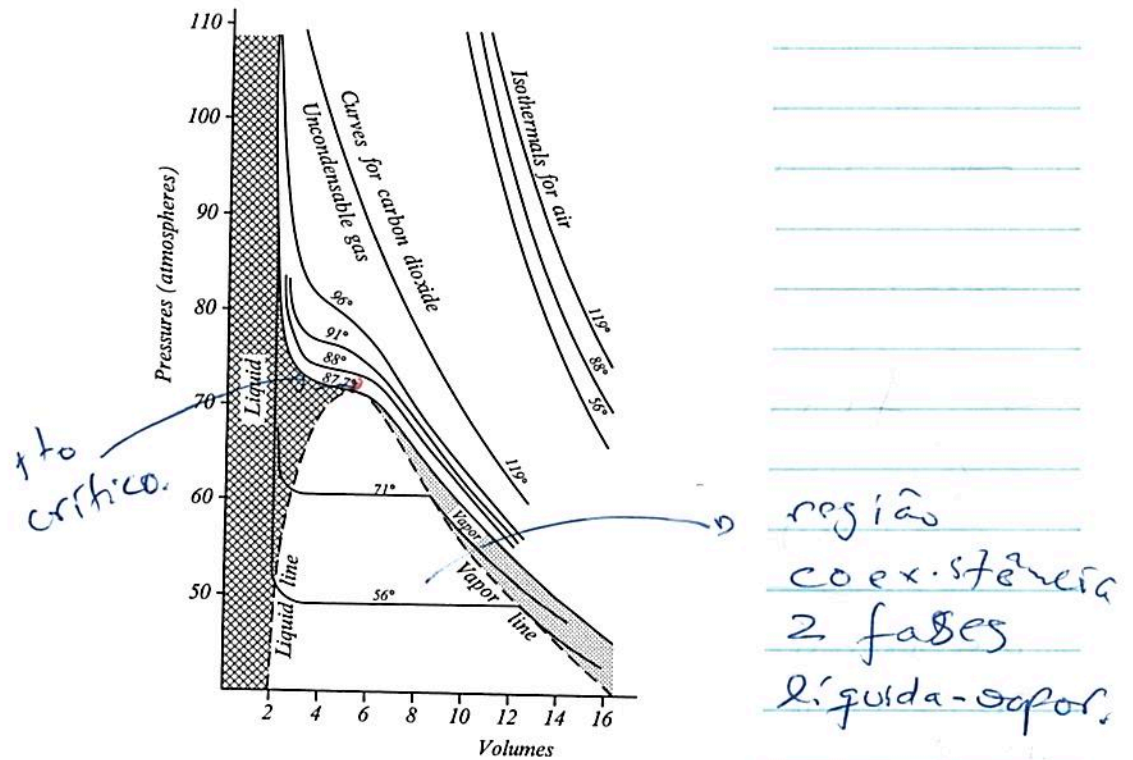 110
100
90
80
70
60
50
Pressures (atmospheres)
2 4 6 8 10 12 14 16
Volumes
Liquid
Liquid line
Vapor
Vapor line
Uncondensable gas
Curves for carbon dioxide
Isothermals for air
96°
91°
88°
87.7°
71°
56°
119°
119°
88°
56°
pto
crítico.
região
coexistência
2 fases
líquida-vapor.